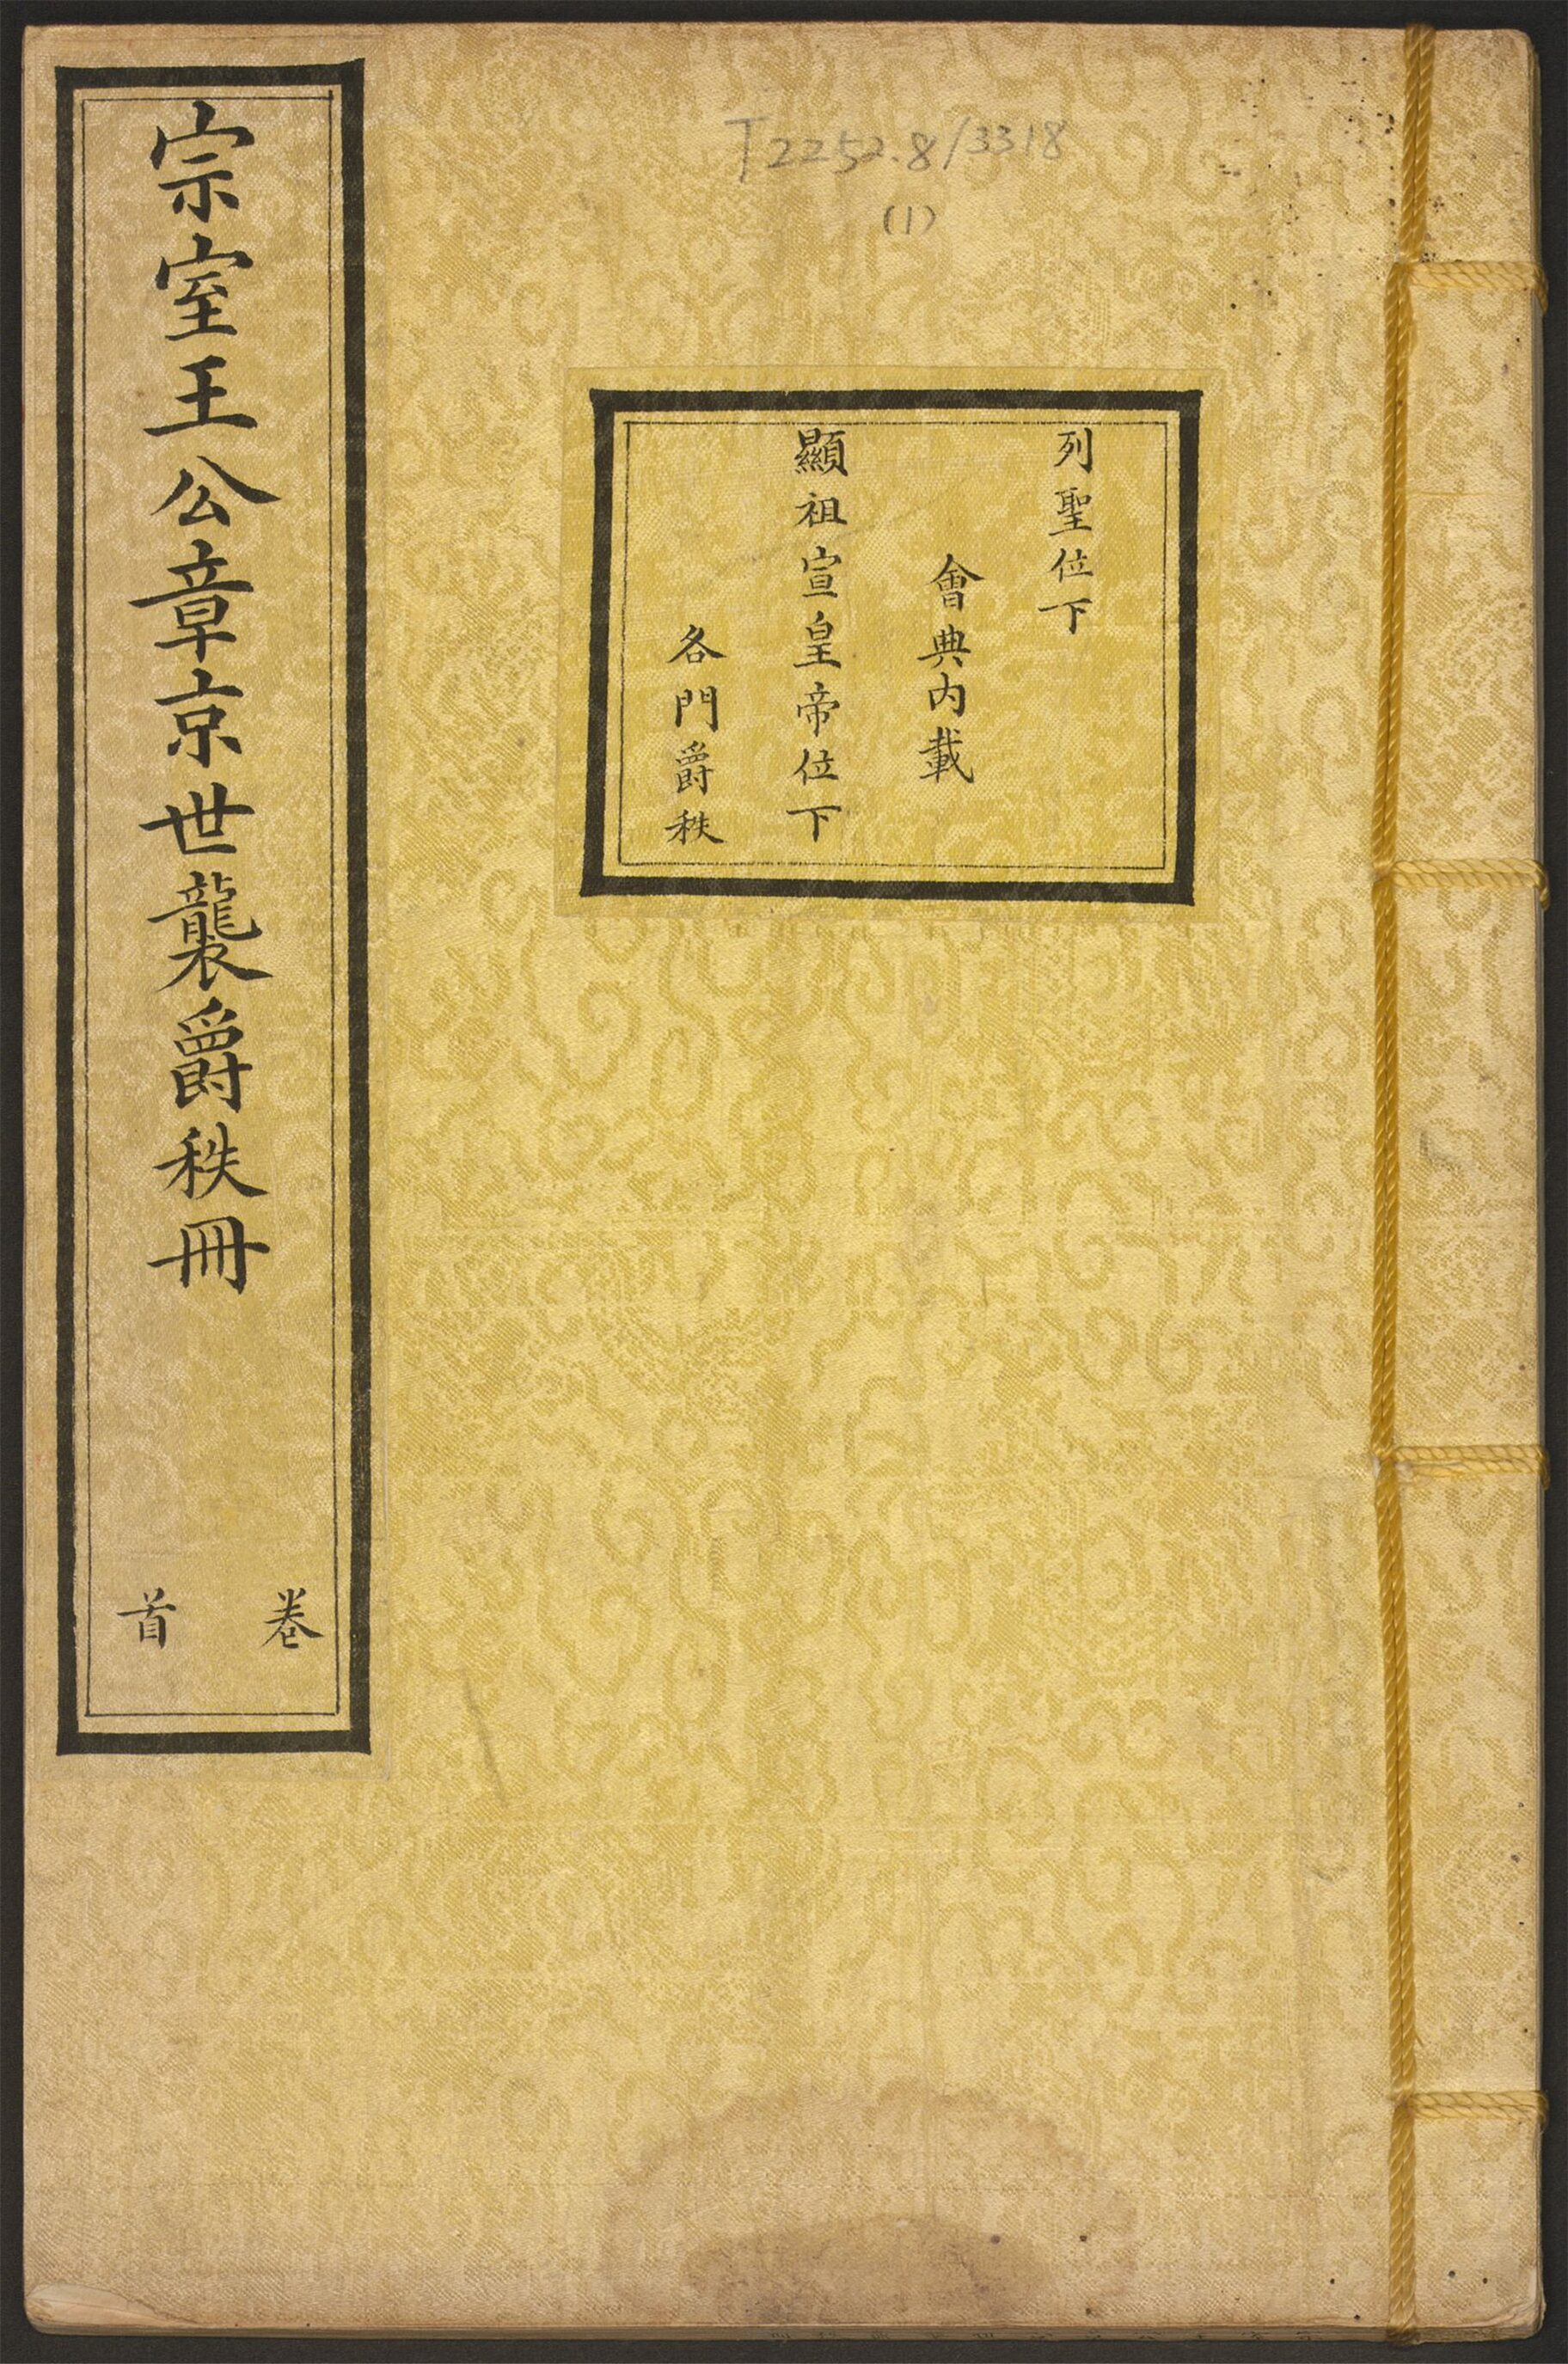 T2252.8/3318
(1)
列聖位下
會典內載
顯祖宣皇帝位下
各門爵秩
宗室王公章京世襲爵秩冊
卷首